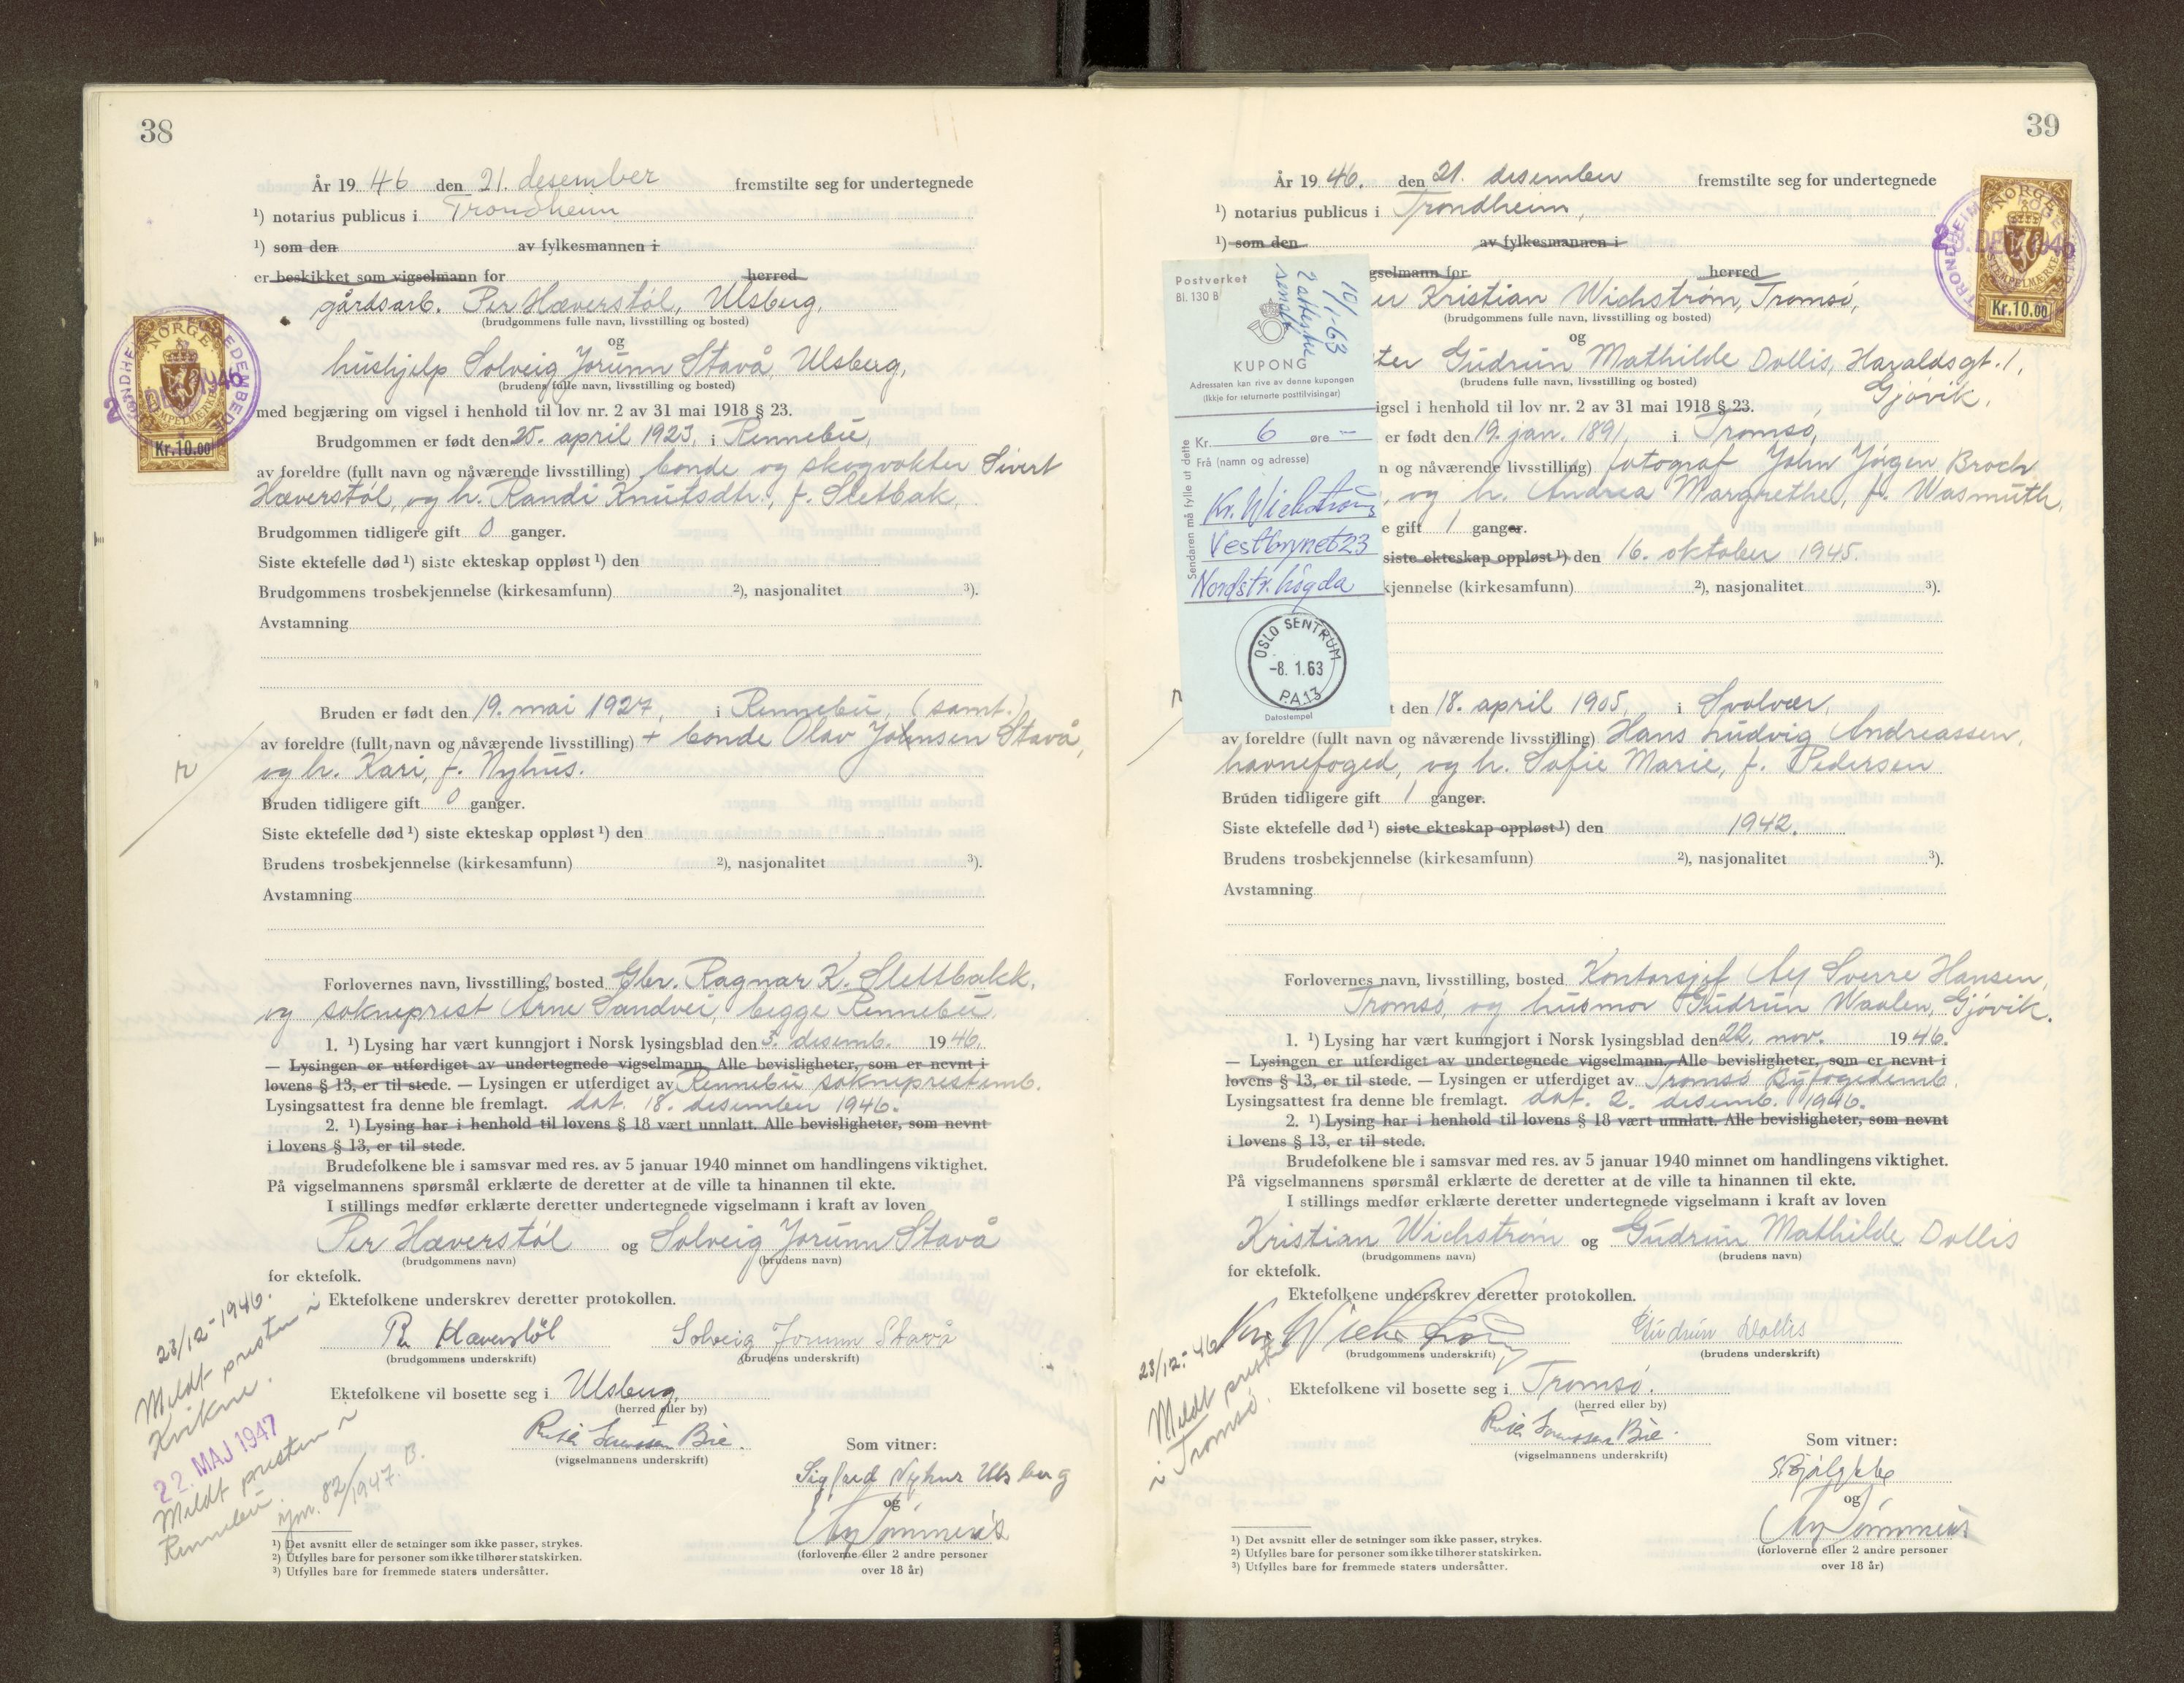 38
År 19 46 den 21. desember fremstilte seg for undertegnede
¹) notarius publicus i Trondheim
¹) som den av fylkesmannen i
er beskikket som vigselmann for herred
gårdsarb. Per Hæverstøl, Ulsberg,
(brudgommens fulle navn, livsstilling og bosted)
og
hushjelp Solveig Jorunn Stavå, Ulsberg,
(brudens fulle navn, livsstilling og bosted)
med begjæring om vigsel i henhold til lov nr. 2 av 31 mai 1918 § 23.
Brudgommen er født den 25. april 1923, i Rennebu,
av foreldre (fullt navn og nåværende livsstilling) bonde og skogvokter Sivert
Hæverstøl, og h. Randi Knutsdtr., f. Sletbak,
Brudgommen tidligere gift 0 ganger.
Siste ektefelle død ¹) siste ekteskap oppløst ¹) den
Brudgommens trosbekjennelse (kirkesamfunn) ²), nasjonalitet ³).
Avstamning
Bruden er født den 19. mai 1927, i Rennebu, (samt.)
av foreldre (fullt navn og nåværende livsstilling) + bonde Olav Johnsen Stavå,
og h. Kari, f. Nyhus.
Bruden tidligere gift 0 ganger.
Siste ektefelle død ¹) siste ekteskap oppløst ¹) den
Brudens trosbekjennelse (kirkesamfunn) ²), nasjonalitet ³).
Avstamning
Forlovernes navn, livsstilling, bosted Gbr. Ragnar K. Slettbakk,
og sokneprest Arne Sandvei, begge Rennebu.
1. ¹) Lysing har vært kunngjort i Norsk lysingsblad den 5. desemb. 1946.
— Lysingen er utferdiget av undertegnede vigselmann. Alle bevisligheter, som er nevnt i
lovens § 13, er til stede. — Lysingen er utferdiget av Rennebu sokneprestemb.
Lysingsattest fra denne ble fremlagt. dat. 18. desember 1946.
2. ¹) Lysing har i henhold til lovens § 18 vært unnlatt. Alle bevisligheter, som nevnt
i lovens § 13, er til stede.
Brudefolkene ble i samsvar med res. av 5 januar 1940 minnet om handlingens viktighet.
På vigselmannens spørsmål erklærte de deretter at de ville ta hinannen til ekte.
I stillings medfør erklærte deretter undertegnede vigselmann i kraft av loven
Per Hæverstøl og Solveig Jorunn Stavå
(brudgommens navn) (brudens navn)
for ektefolk.
Ektefolkene underskrev deretter protokollen.
Per Hæverstøl Solveig Jorunn Stavå
(brudgommens underskrift) (brudens underskrift)
Ektefolkene vil bosette seg i Ulsberg
(herred eller by)
(vigselmannens underskrift)
Som vitner:
Sigfred Nyhus Ulsberg
og
(forloverne eller 2 andre personer
over 18 år)
23/12-1946.
Meldt presten i
Kvikne.
22. MAJ 1947
Meldt presten i
Rennebu.
jnr. 82/1947. B.
¹) Det avsnitt eller de setninger som ikke passer, strykes.
²) Utfylles bare for personer som ikke tilhører statskirken.
³) Utfylles bare for fremmede staters undersåtter.
NORGE
Kr.10.00
39
År 19 46. den 21. desember fremstilte seg for undertegnede
¹) notarius publicus i Trondheim,
¹) som den av fylkesmannen i
gselmann for herred
er Kristian Wichstrøm, Tromsø,
(brudgommens fulle navn, livsstilling og bosted)
og
ter Gudrun Mathilde Dollis, Haraldsgt. 1,
Gjøvik.
(brudens fulle navn, livsstilling og bosted)
igsel i henhold til lov nr. 2 av 31 mai 1918 § 23.
er født den 19. jan. 1891, i Tromsø,
n og nåværende livsstilling) fotograf John Jørgen Broch
, og h. Andrea Margrethe, f. Wasmuth,
e gift 1 ganger.
siste ekteskap oppløst ¹) den 16. oktober 1945.
kjennelse (kirkesamfunn) ²), nasjonalitet ³).
t den 18. april 1905, i Svolvær,
av foreldre (fullt navn og nåværende livsstilling) Hans Ludvig Andreassen,
havnefoged, og h. Sofie Marie, f. Pedersen
Bruden tidligere gift 1 ganger.
Siste ektefelle død ¹) siste ekteskap oppløst ¹) den 1942.
Brudens trosbekjennelse (kirkesamfunn) ²), nasjonalitet ³).
Avstamning
Forlovernes navn, livsstilling, bosted Kontorsjef Ag Sverre Hansen,
Tromsø, og husmor Gudrun Waalen, Gjøvik.
1. ¹) Lysing har vært kunngjort i Norsk lysingsblad den 22. nov. 1946.
— Lysingen er utferdiget av undertegnede vigselmann. Alle bevisligheter, som er nevnt i
lovens § 13, er til stede. — Lysingen er utferdiget av Tromsø Byfogedemb.
Lysingsattest fra denne ble fremlagt. dat. 2. desemb. 1946.
2. ¹) Lysing har i henhold til lovens § 18 vært unnlatt. Alle bevisligheter, som nevnt
i lovens § 13, er til stede.
Brudefolkene ble i samsvar med res. av 5 januar 1940 minnet om handlingens viktighet.
På vigselmannens spørsmål erklærte de deretter at de ville ta hinannen til ekte.
I stillings medfør erklærte deretter undertegnede vigselmann i kraft av loven
Kristian Wichstrøm og Gudrun Mathilde Dollis
(brudgommens navn) (brudens navn)
for ektefolk.
Ektefolkene underskrev deretter protokollen.
Kr. Wichstrøm Gudrun Dollis
(brudgommens underskrift) (brudens underskrift)
Ektefolkene vil bosette seg i Tromsø.
(herred eller by)
(vigselmannens underskrift)
Som vitner:
og
(forloverne eller 2 andre personer
over 18 år)
23/12-46
Meldt presten
i Tromsø.
¹) Det avsnitt eller de setninger som ikke passer, strykes.
²) Utfylles bare for personer som ikke tilhører statskirken.
³) Utfylles bare for fremmede staters undersåtter.
NORGE
Kr.10.00
Postverket
Bl. 130 B
10/1-63
2 attester
sendt
KUPONG
Adressaten kan rive av denne kupongen
(Ikkje for returnerte posttilvisingar)
Sendaren må fylle ut dette
Kr. 6 øre —
Frå (namn og adresse)
Kr. Wichstrøm
Vestbrynet 23
Nordstr. høgda
OSLO SENTRUM
-8. 1.63
P.A.13
Datostempel